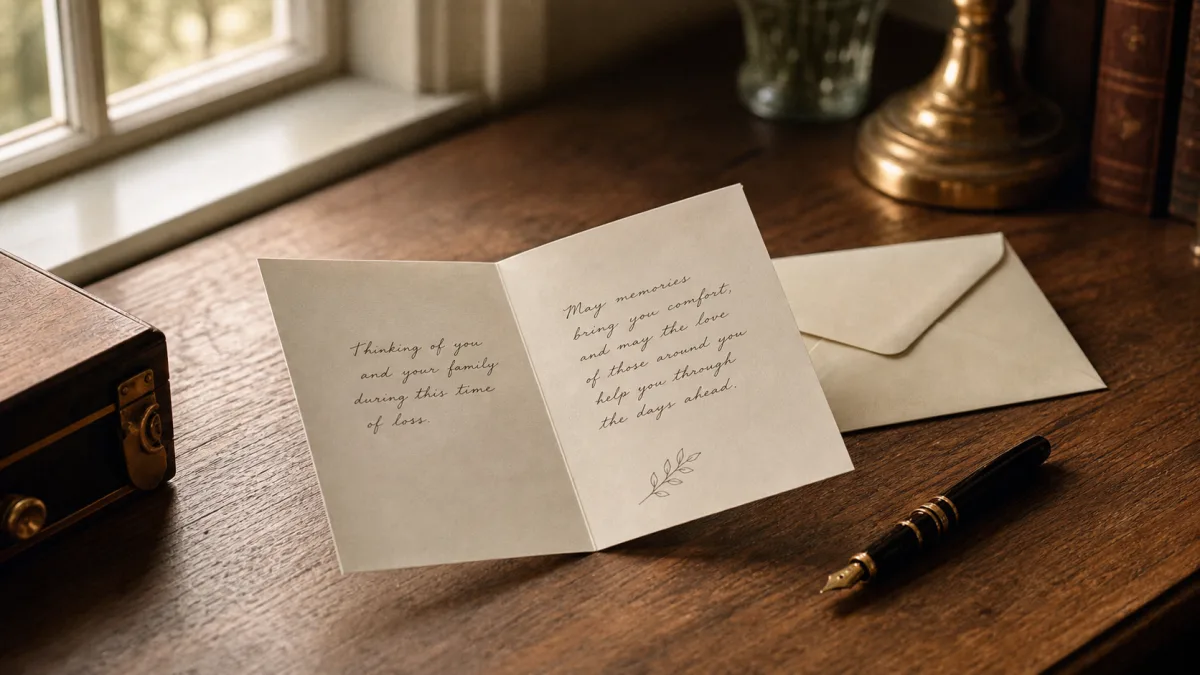 Thinking of you
and your family
during this time
of loss.
May memories
bring you comfort,
and may the love
of those around you
help you through
the days ahead.